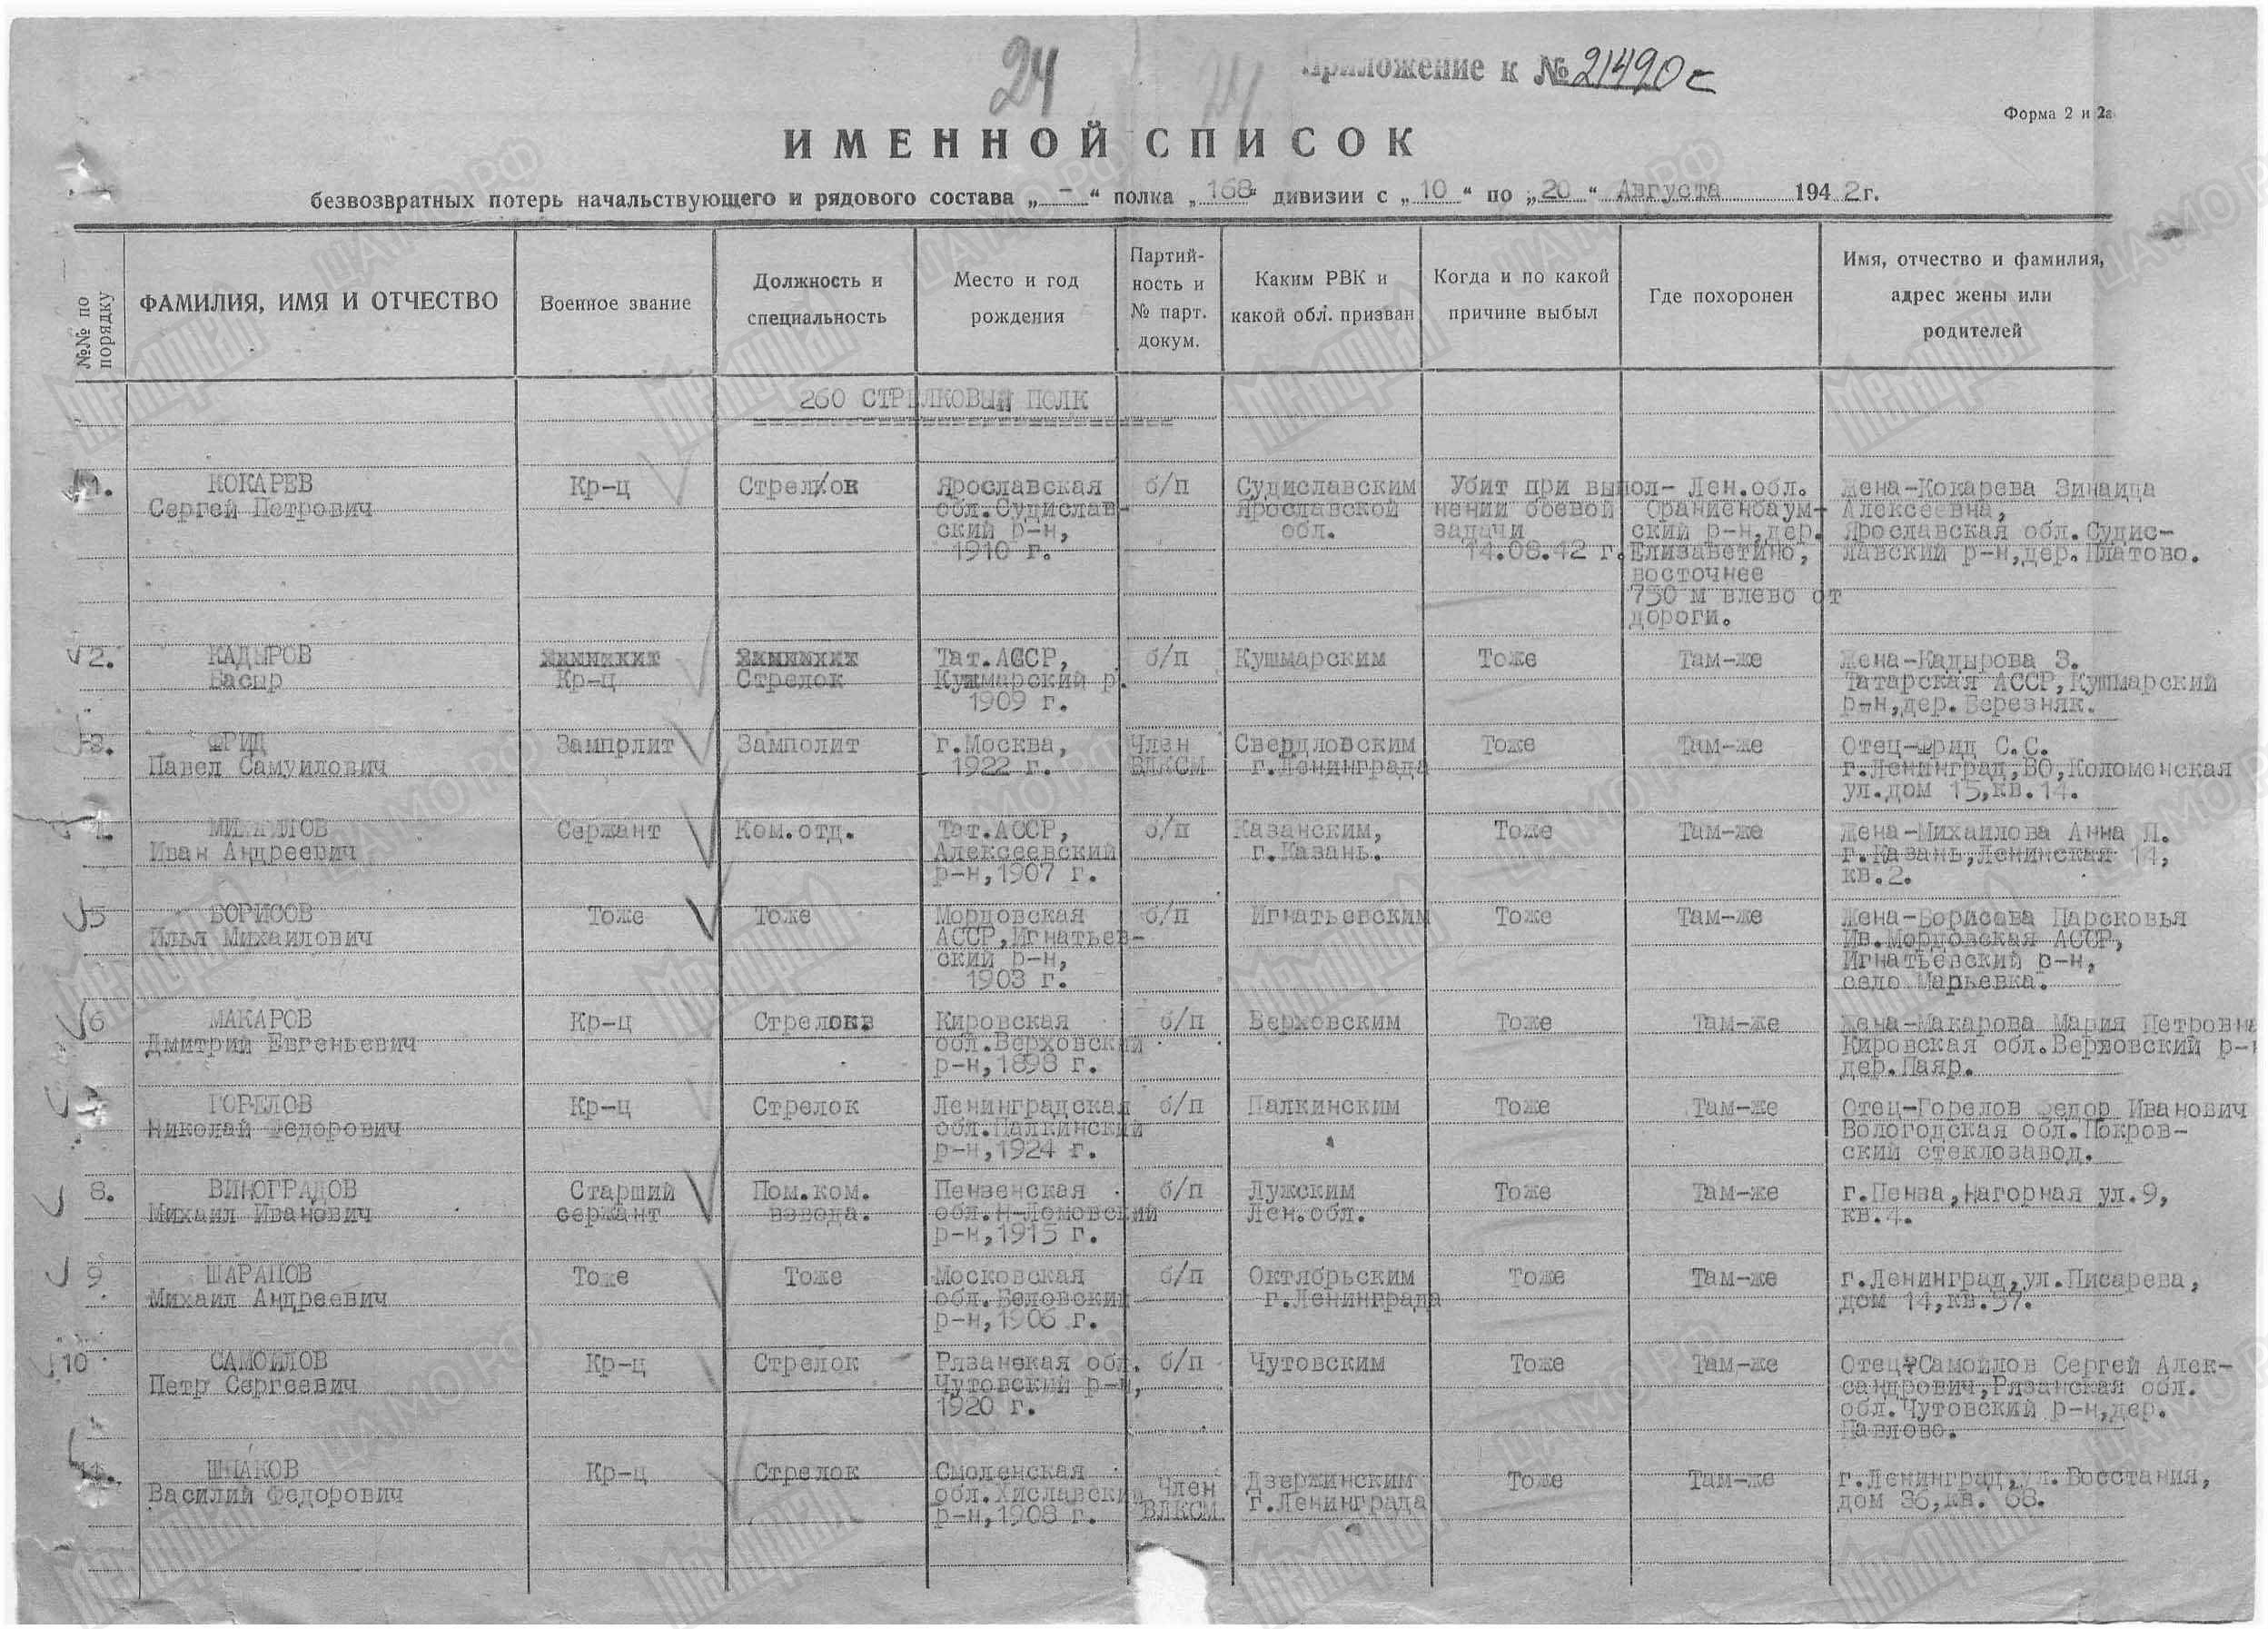 24
Приложение к № 21490с
Форма 2 и 2а
ИМЕННОЙ СПИСОК
безвозвратных потерь начальствующего и рядового состава „ - “ полка „ 168 “ дивизии с „ 10 “ по „ 20 “ Августа 1942 г.
№№ по порядку
ФАМИЛИЯ, ИМЯ И ОТЧЕСТВО
Военное звание
Должность и
специальность
Место и год
рождения
Партий-
ность и
№ парт.
докум.
Каким РВК и
какой обл. призван
Когда и по какой
причине выбыл
Где похоронен
Имя, отчество и фамилия,
адрес жены или
родителей
260 СТРЕЛКОВЫЙ ПОЛК
1.
КОКАРЕВ
Сергей Петрович
Кр-ц
Стрелок
Ярославская
обл.Судислав-
ский р-н,
1910 г.
б/п
Судиславским
Ярославской
обл.
Убит при выпол-
нении боевой
задачи
14.08.42 г.
Лен.обл.
Ораниенбаум-
ский р-н,дер.
Елизаветино,
восточнее
750 м влево от
дороги.
Жена-Кокарева Зинаида
Алексеевна,
Ярославская обл.Судис-
лавский р-н,дер.Платово.
2.
КАДЫРОВ
Басыр
Кр-ц
Стрелок
Тат.АССР,
Кушмарский р.
1909 г.
б/п
Кушмарским
Тоже
Там-же
Жена-Кадырова З.
Татарская АССР,Кушмарский
р-н,дер.Березняк.
3.
ФРИД
Павел Самуилович
Замполит
Замполит
г.Москва,
1922 г.
Член
ВЛКСМ
Свердловским
г.Ленинграда
Тоже
Там-же
Отец-Фрид С.С.
г.Ленинград,ВО,Коломенская
ул.дом 15,кв.14.
4.
МИХАЙЛОВ
Иван Андреевич
Сержант
Ком.отд.
Тат.АССР,
Алексеевский
р-н,1907 г.
б/п
Казанским,
г.Казань.
Тоже
Там-же
Жена-Михайлова Анна П.
г.Казань,Ленинская 14,
кв.2.
5
БОРИСОВ
Илья Михайлович
Тоже
Тоже
Мордовская
АССР,Игнатьев-
ский р-н,
1903 г.
б/п
Игнатьевским
Тоже
Там-же
Жена-Борисова Парсковья
Ив.Мордовская АССР,
Игнатьевский р-н,
село Марьевка.
6
МАКАРОВ
Дмитрий Евгеньевич
Кр-ц
Стрелок
Кировская
обл.Верховский
р-н,1898 г.
б/п
Верховским
Тоже
Там-же
Жена-Макарова Мария Петровна
Кировская обл.Верховский р-н
дер.Паяр.
ГОРЕЛОВ
Николай Федорович
Кр-ц
Стрелок
Ленинградская
обл.Палкинский
р-н,1924 г.
б/п
Палкинским
Тоже
Там-же
Отец-Горелов Федор Иванович
Вологодская обл.Покров-
ский стеклозавод.
8.
ВИНОГРАДОВ
Михаил Иванович
Старший
сержант
Пом.ком.
взвода.
Пензенская
обл.Н-Ломовский
р-н,1915 г.
б/п
Лужским
Лен.обл.
Тоже
Там-же
г.Пенза,Нагорная ул.9,
кв.4.
9
ШАРАПОВ
Михаил Андреевич
Тоже
Тоже
Московская
обл.Беловский
р-н,1906 г.
б/п
Октябрьским
г.Ленинграда
Тоже
Там-же
г.Ленинград,ул.Писарева,
дом 14,кв.37.
10
САМОЙЛОВ
Петр Сергеевич
Кр-ц
Стрелок
Рязанская обл.
Чутовский р-н,
1920 г.
б/п
Чутовским
Тоже
Там-же
Отец-Самойлов Сергей Алек-
сандрович,Рязанская обл.
обл.Чутовский р-н,дер.
Павлово.
11.
ШПАКОВ
Василий Федорович
Кр-ц
Стрелок
Смоленская
обл.Хиславский
р-н,1908 г.
Член
ВЛКСМ
Дзержинским
г.Ленинграда
Тоже
Там-же
г.Ленинград,ул.Восстания,
дом 36,кв. 68.